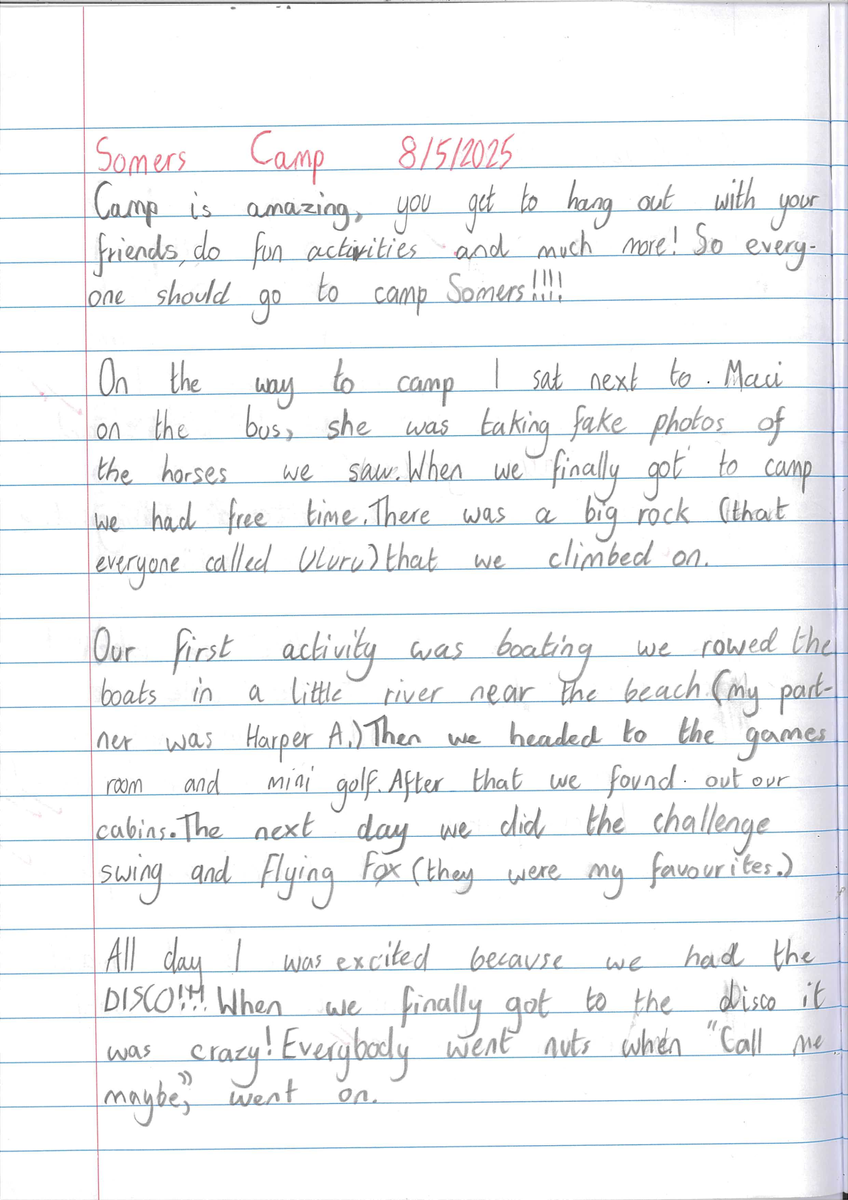 Somers Camp 8/5/2025
Camp is amazing, you get to hang out with your
friends, do fun activities and much more! So every-
one should go to camp Somers!!!!
On the way to camp I sat next to. Maci
on the bus, she was taking fake photos of
the horses we saw. When we finally got to camp
we had free time. There was a big rock (that
everyone called Uluru) that we climbed on.
Our first activity was boating we rowed the
boats in a little river near the beach. (my part-
ner was Harper A.) Then we headed to the games
room and mini golf. After that we found. out our
cabins. The next day we did the challenge
swing and Flying Fox (they were my favourites.)
All day I was excited because we had the
DISCO!!!! When we finally got to the disco it
was crazy! Everybody went nuts when "Call me
maybe," went on.